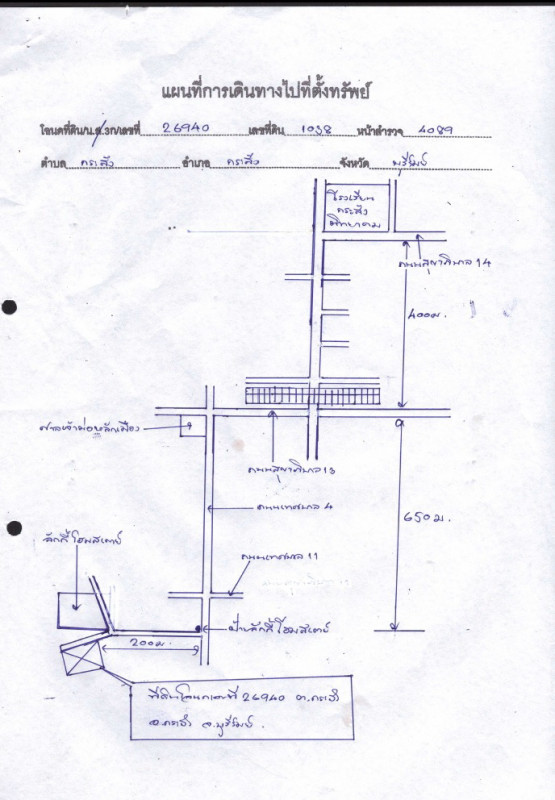 แผนที่การเดินทางไปที่ตั้งทรัพย์
โฉนดที่ดิน/น.ส.3ก/เลขที่ 26940 เลขที่ดิน 1038 หน้าสำรวจ 4089
ตำบล กระสัง อำเภอ กระสัง จังหวัด บุรีรัมย์
โรงเรียน
กระสัง
พิทยาคม
ถนนสุขาภิบาล 14
400ม.
ศาลเจ้าพ่อหลักเมือง
ถนนสุขาภิบาล 13
ถนนเทศบาล 4
650ม.
ลักกี้ โฮมสเตย์
ถนนเทศบาล 11
ป้ายลักกี้ โฮมสเตย์
200ม.
ที่ดินโฉนดเลขที่ 26940 ต.กระสัง
อ.กระสัง จ.บุรีรัมย์.